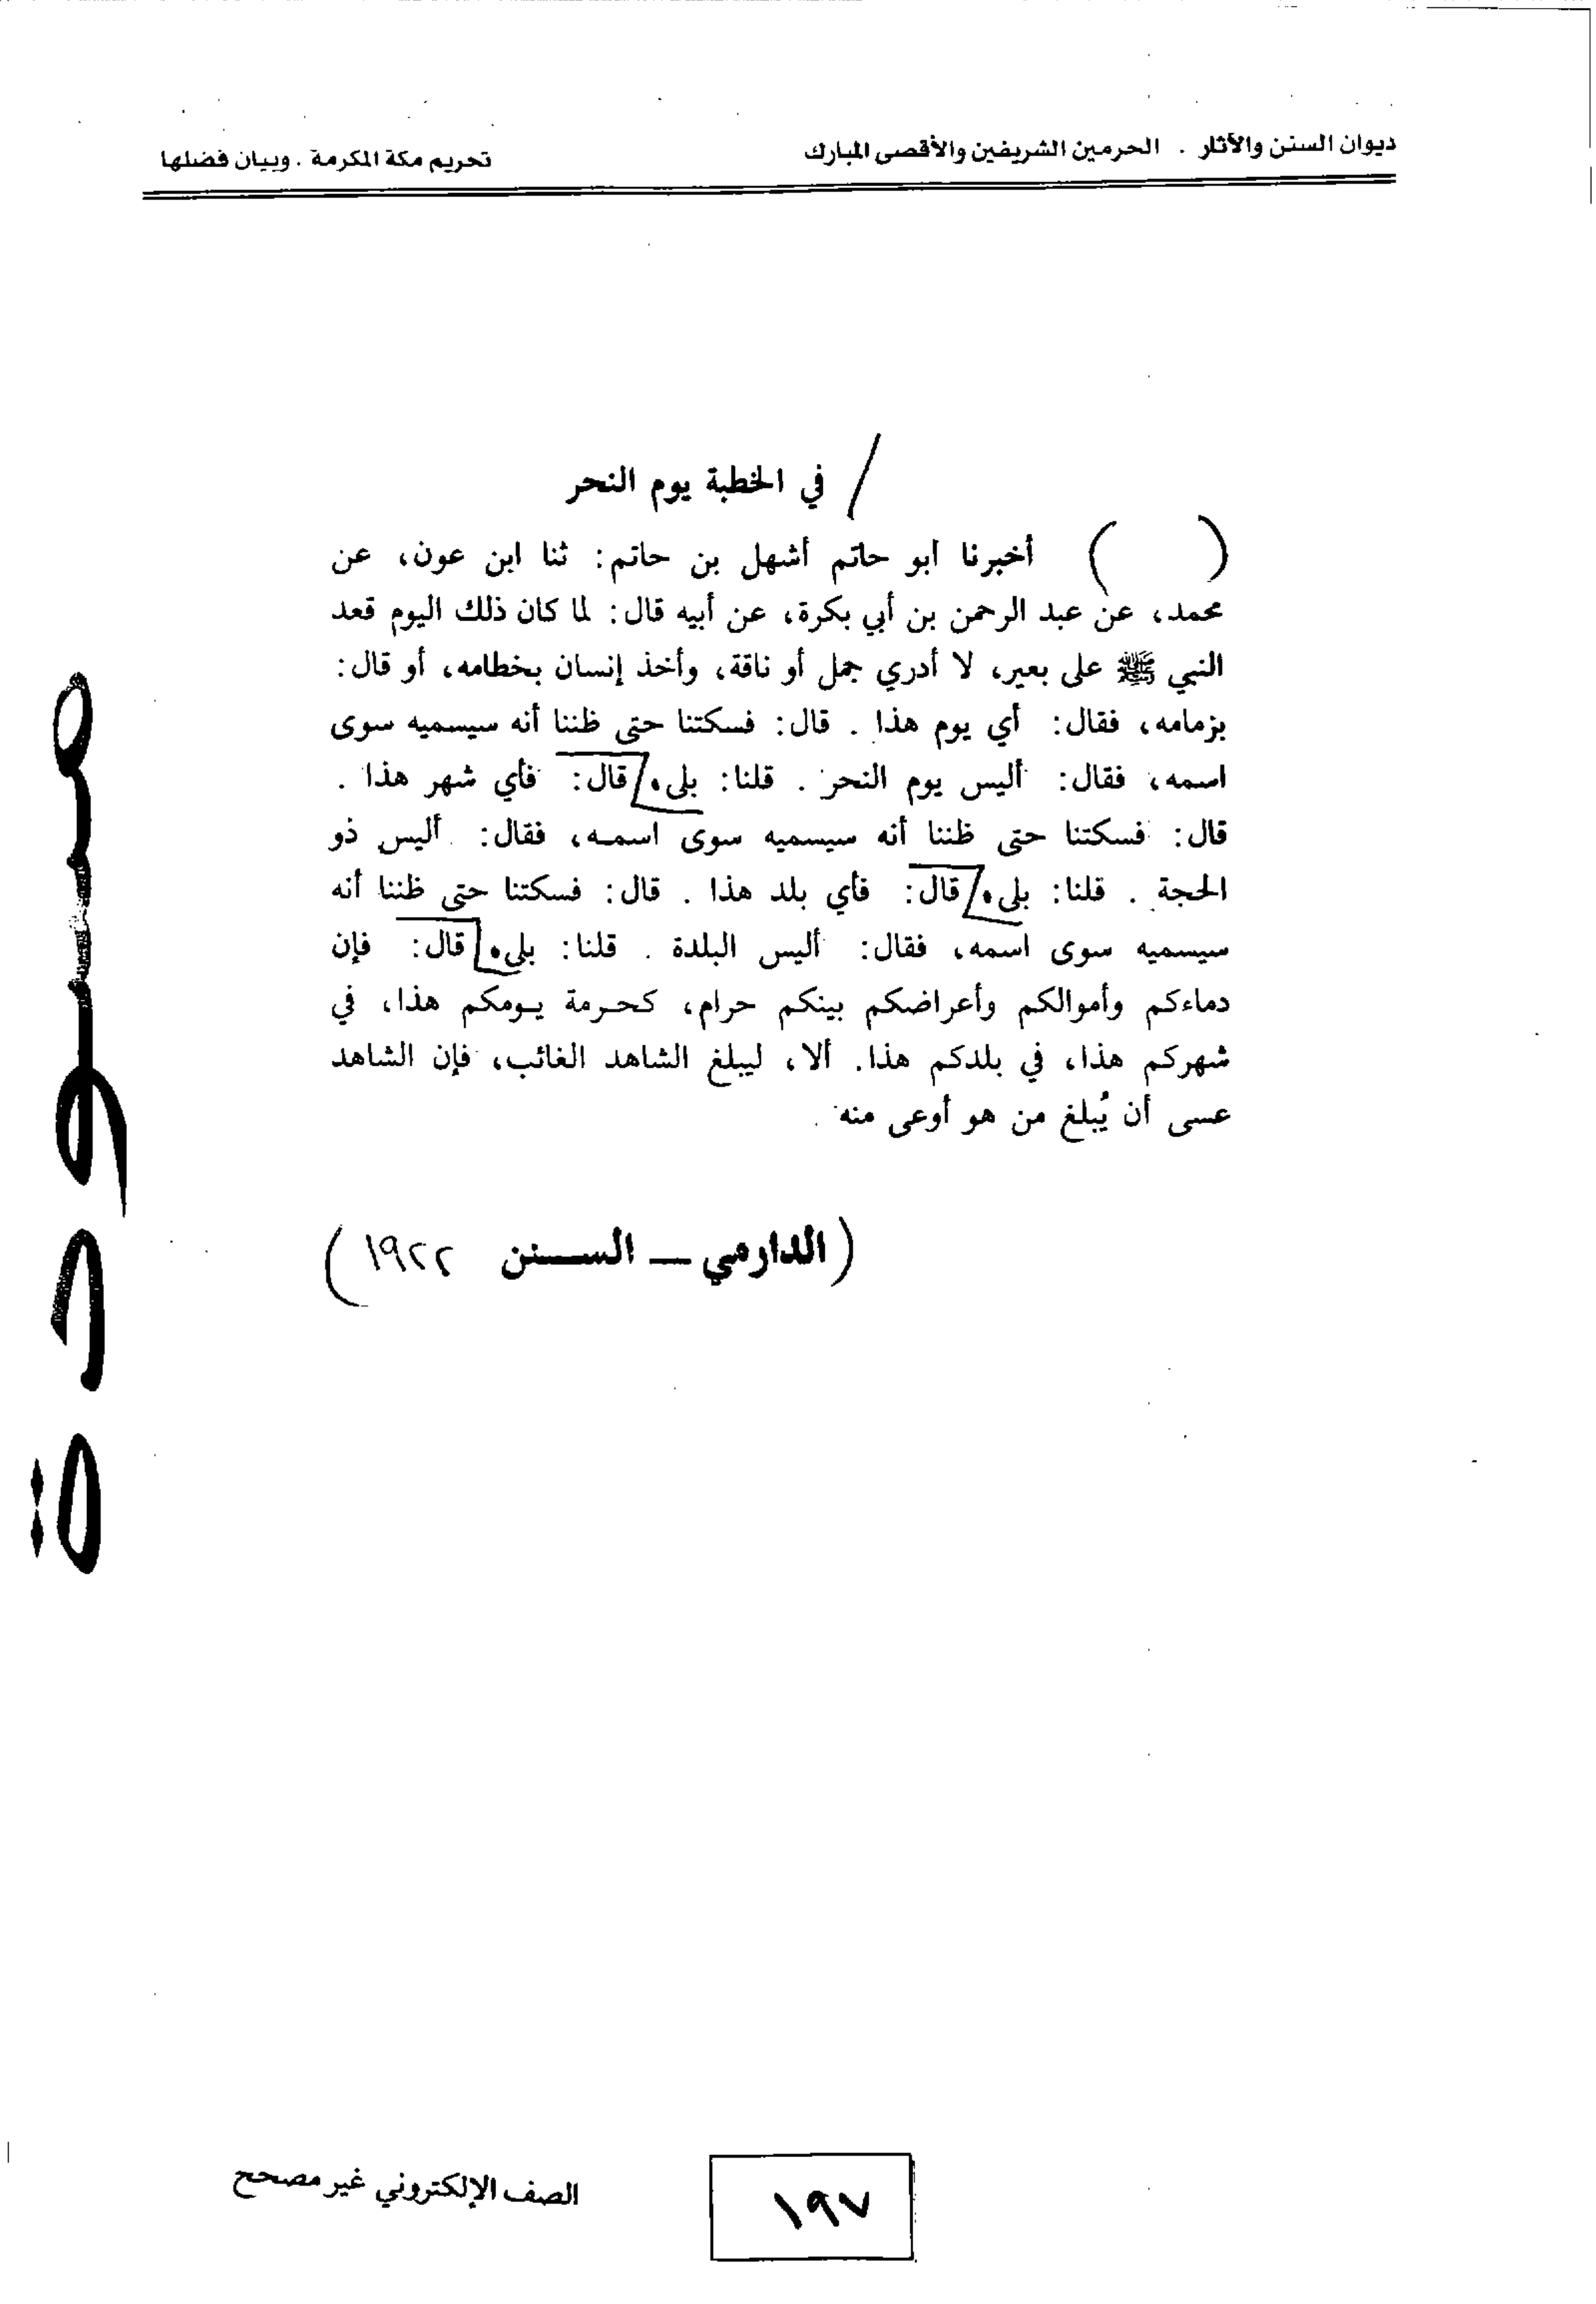 ديوان السنن والآثار . الحرمين الشريفين والأقصى المبارك
تحريم مكة المكرمة . وبيان فضلها
/ في الخطبة يوم النحر
( ) أخبرنا أبو حاتم أشهل بن حاتم: ثنا ابن عون، عن
محمد، عن عبد الرحمن بن أبي بكرة، عن أبيه قال: لما كان ذلك اليوم قعد
النبي ﷺ على بعير، لا أدري جمل أو ناقة، وأخذ إنسان بخطامه، أو قال:
بزمامه، فقال: أي يوم هذا . قال: فسكتنا حتى ظننا أنه سيسميه سوى
اسمه، فقال: أليس يوم النحر . قلنا: بلى. قال: فأي شهر هذا .
قال: فسكتنا حتى ظننا أنه سيسميه سوى اسمه، فقال: أليس ذو
الحجة . قلنا: بلى. قال: فأي بلد هذا . قال: فسكتنا حتى ظننا أنه
سيسميه سوى اسمه، فقال: أليس البلدة . قلنا: بلى. قال: فإن
دماءكم وأموالكم وأعراضكم بينكم حرام، كحرمة يومكم هذا، في
شهركم هذا، في بلدكم هذا. ألا، ليبلغ الشاهد الغائب، فإن الشاهد
عسى أن يُبلغ من هو أوعى منه
(الدارمي – السنن ١٩٢٢)
مسودة
١٩٧
الصف الإلكتروني غير مصحح